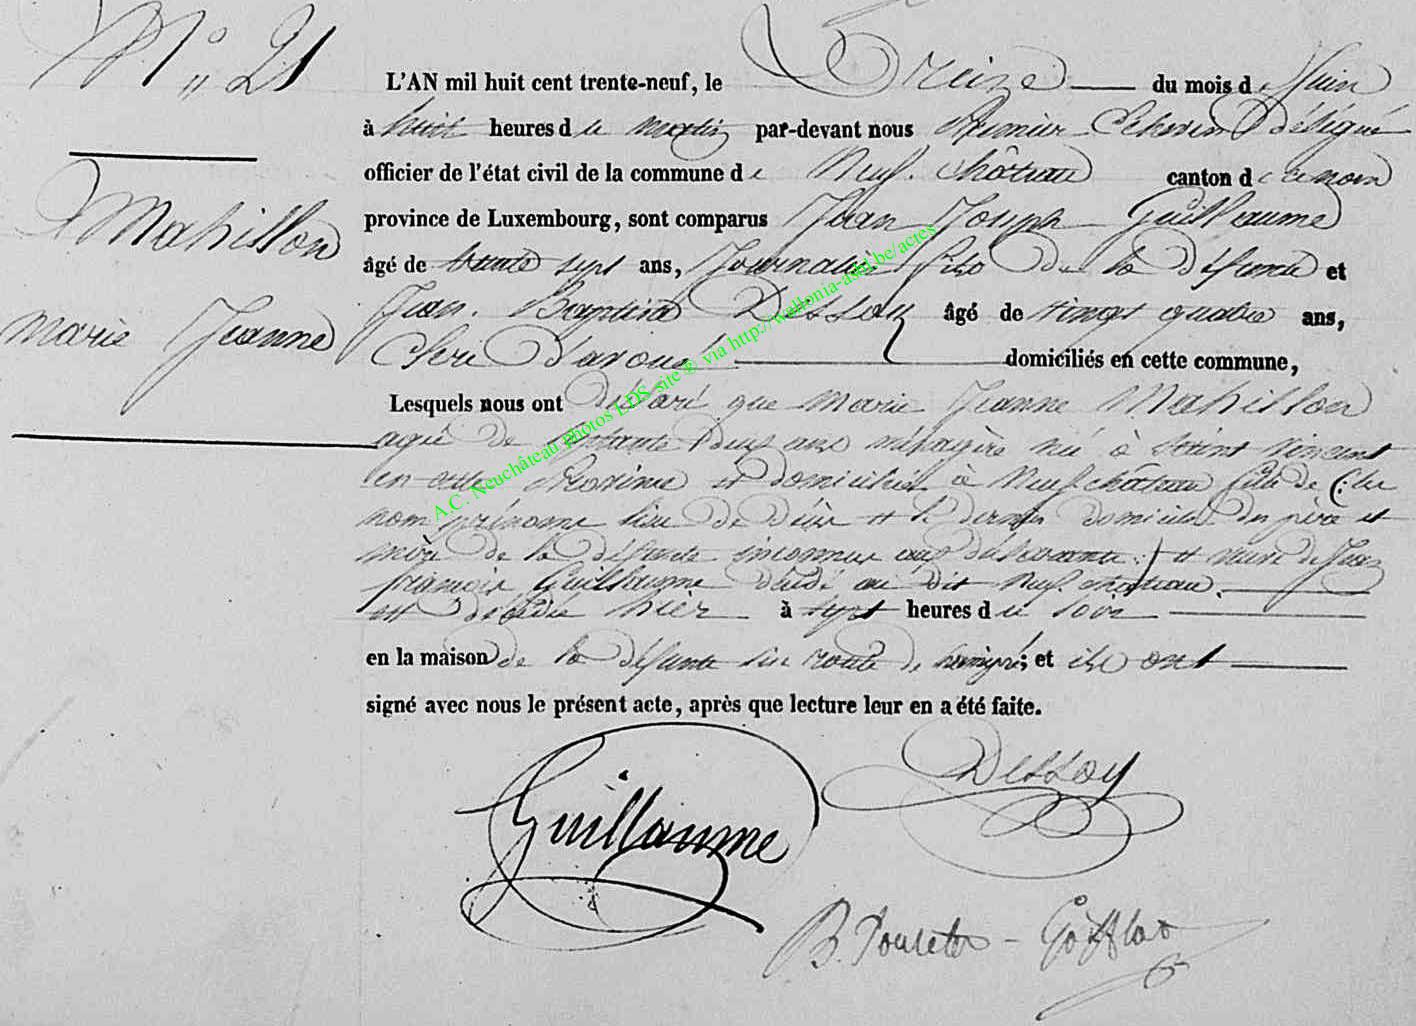 N° 21
Mahillon
marie Jeanne
L'AN mil huit cent trente-neuf, le Treize du mois de Juin
à huit heures du matin par-devant nous Premier Echevin Délégué
officier de l'état civil de la commune de Neufchâteau canton de ce nom
province de Luxembourg, sont comparus Jean Joseph Guillaume
âgé de trente sept ans, Journalier fils de la défunte et
Jean Baptiste Dessoy âgé de vingt quatre ans,
Clerc D'avoué domiciliés en cette commune,
Lesquels nous ont déclaré que marie Jeanne Mahillon
agée de septante Deux ans ménagère née à Saint vincent
en cette Province et domiciliée à Neufchâteau fille de (: les
nom prénoms lieu de décès et le dernier domicile des père et
mère de la défunte inconnus aux déclarants :) et veuve de Jean
françois Guillaume décédé au dit Neufchateau.
est décédée hier à sept heures du soir
en la maison de la défunte sise route de ; et ils ont
signé avec nous le présent acte, après que lecture leur en a été faite.
Guillaume
Dessoy
B. Poncelet - Gofflot
A.C. Neuchâteau photos LDS site ® via http://wallonia-asbl.be/actes